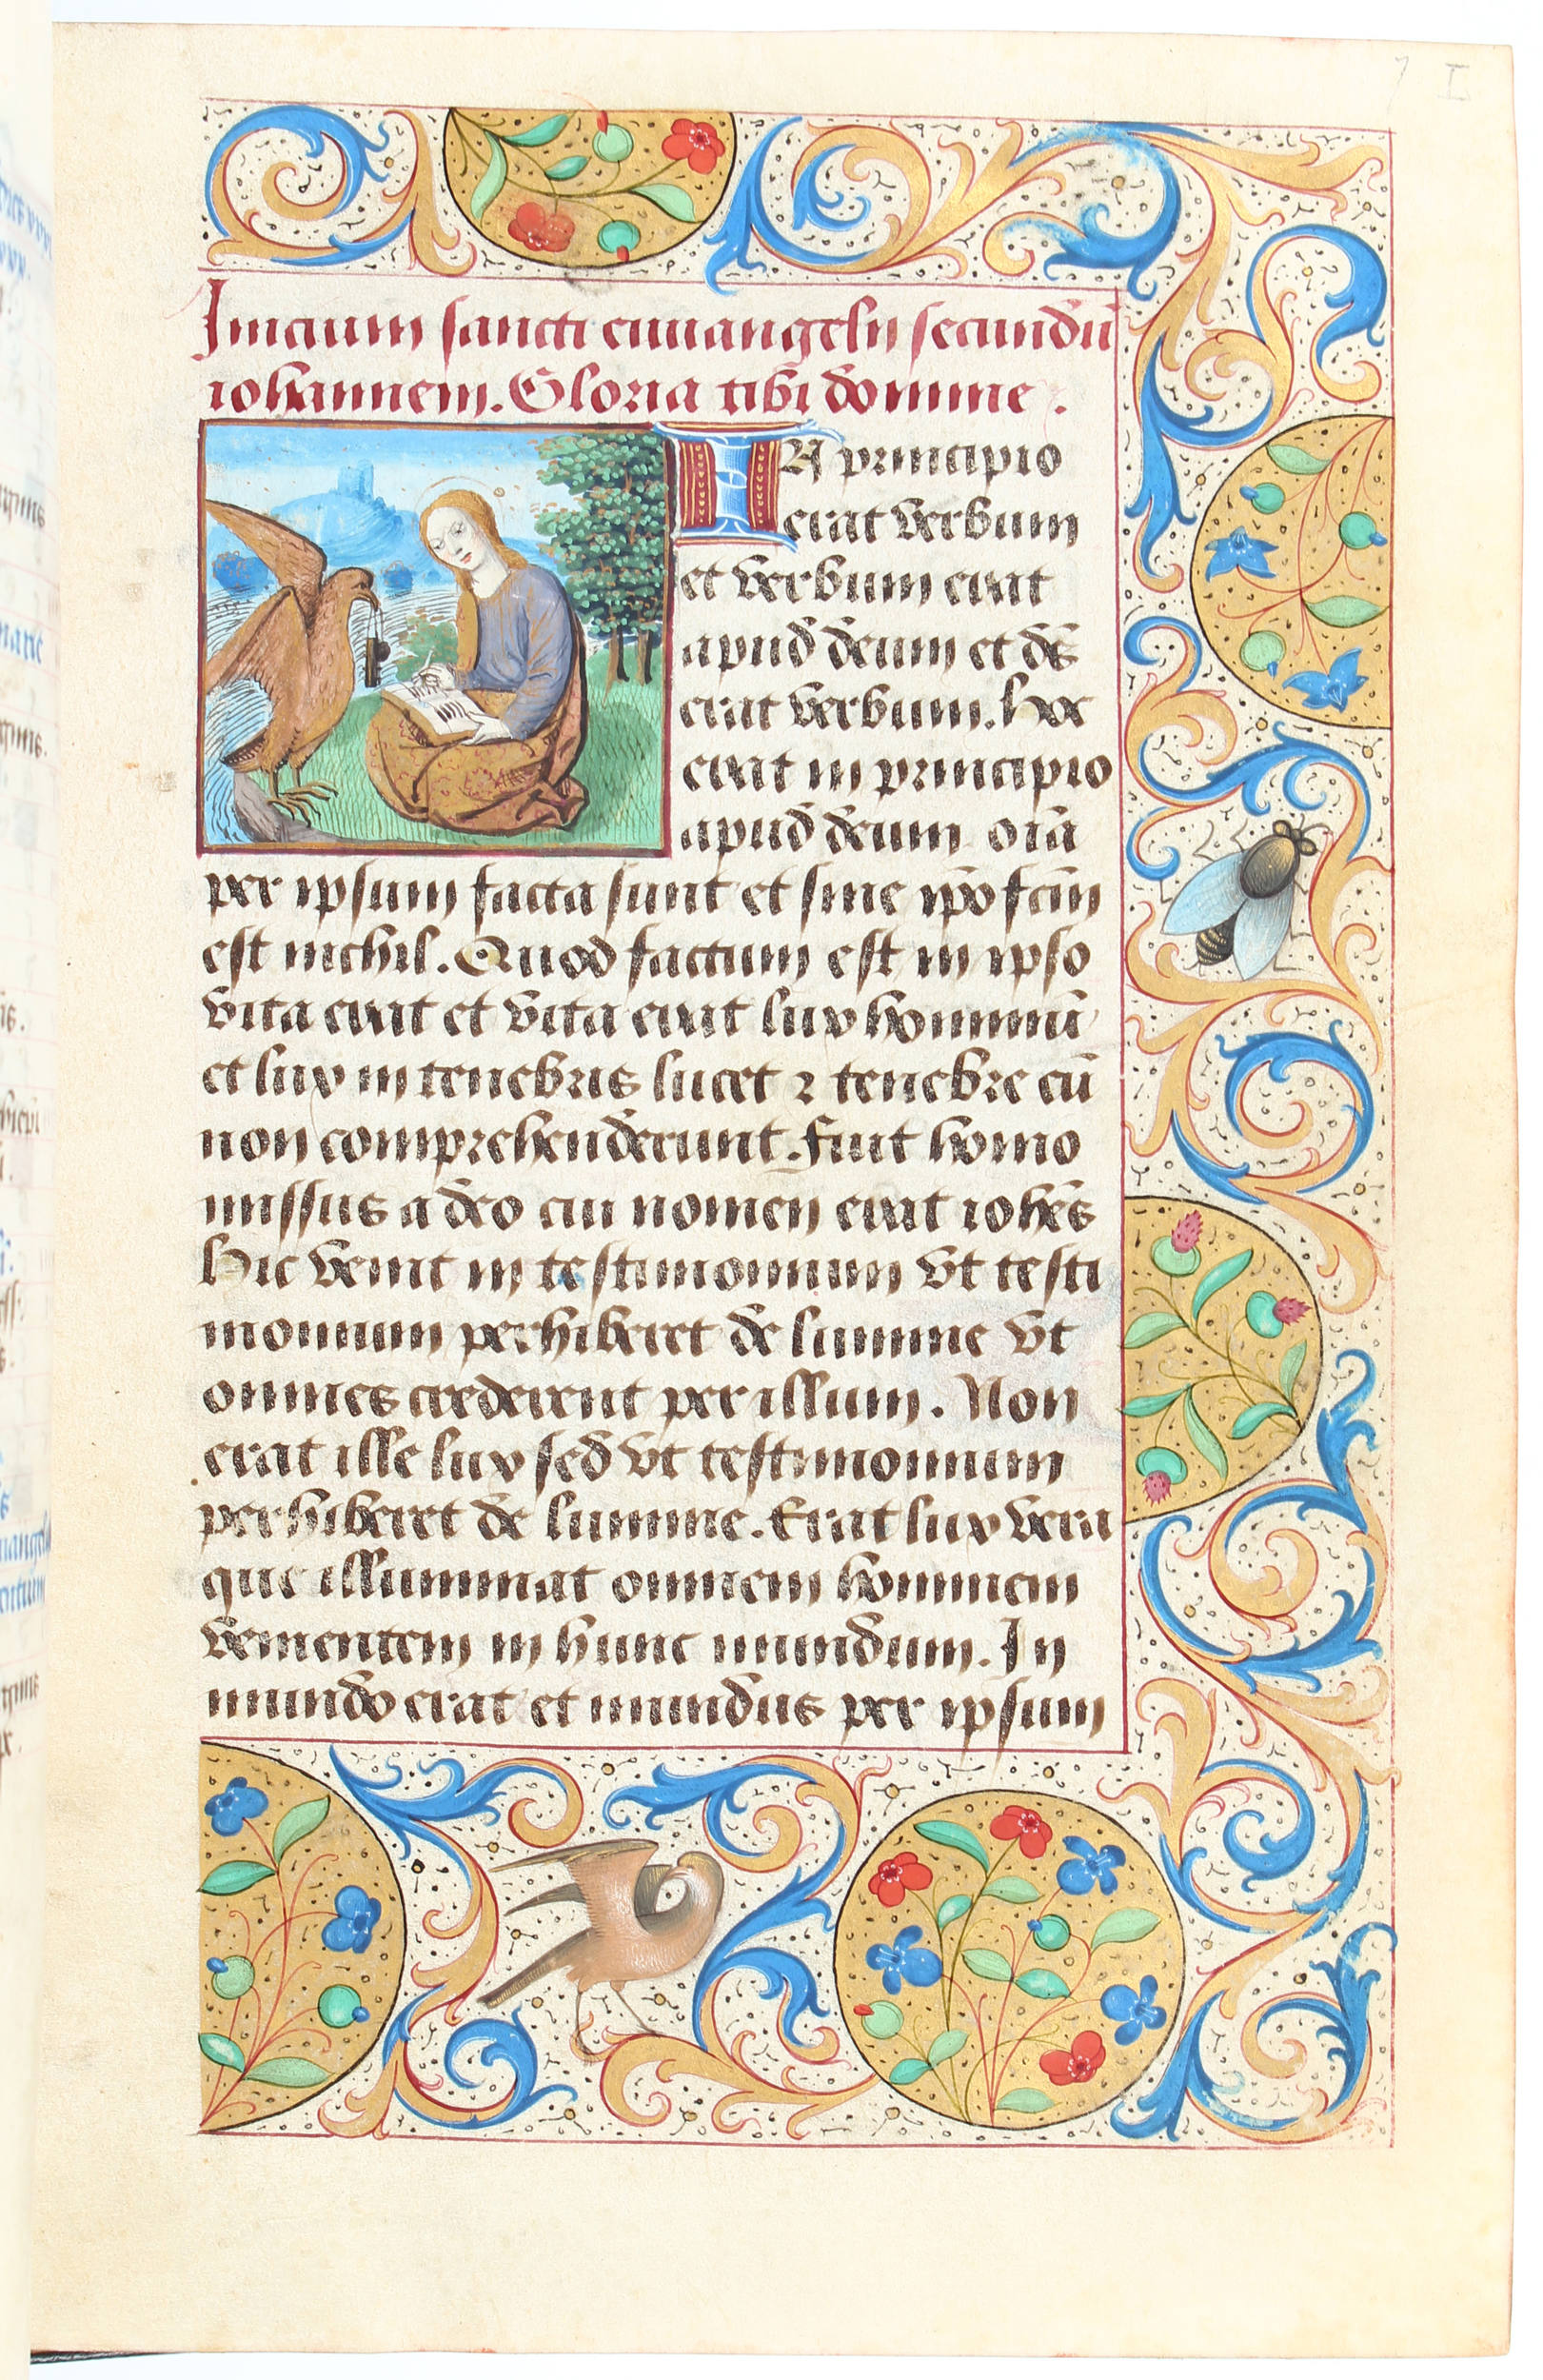 Inicium sancti euuangelii secundū
iohannem. Gloria tibi domine.
IN principio
erat verbum
et verbum erat
apud deum et de͂s
erat verbum. Hoc
erat in principio
apud deum oīa
per ipsum facta sunt et sine ip̄o fc̄m
est nichil. Quod factum est in ipso
vita erat et vita erat lux hominū
et lux in tenebris lucet ⁊ tenebre eū
non comprehenderunt. Fuit homo
missus a deo cui nomen erat ioh̄es
Hic venit in testimonium vt testi
monium perhiberet de lumine vt
omnes crederent per illum. Non
erat ille lux sed vt testimonium
perhiberet de lumine. Erat lux vera
que illuminat omnem hominem
venientem in hunc mundum. In
mundo erat et mundus per ipsum